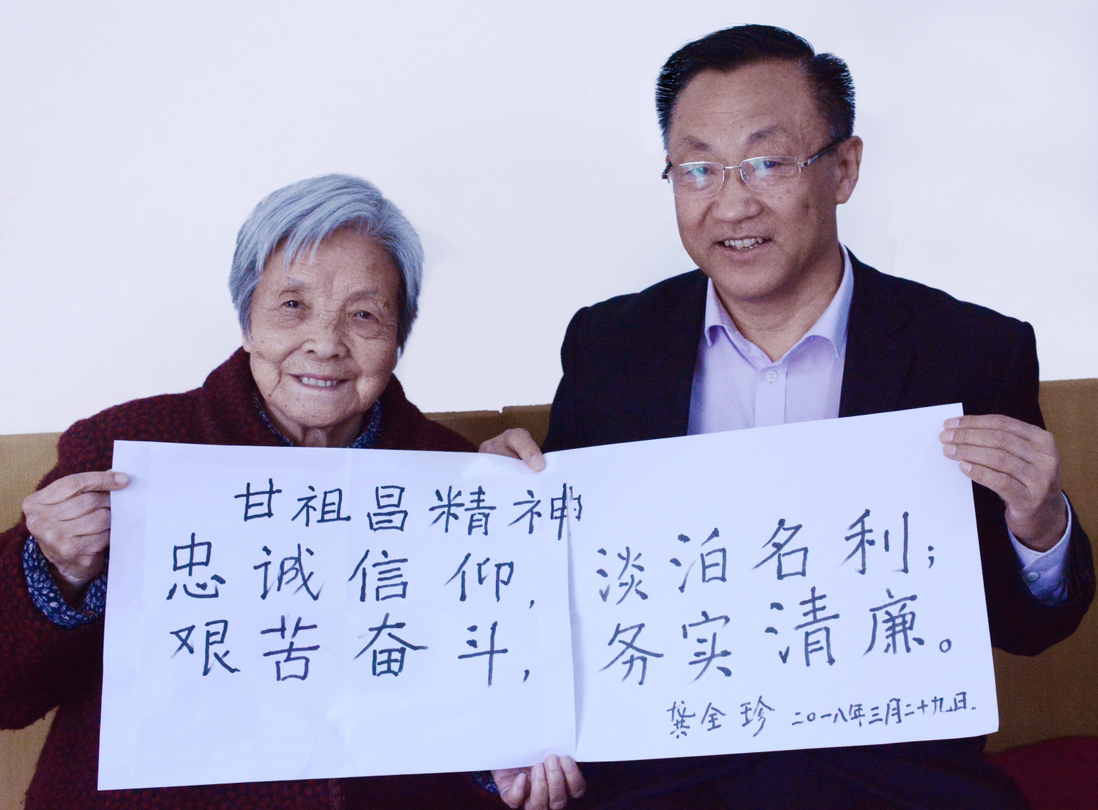 甘祖昌精神
忠诚信仰，淡泊名利；
艰苦奋斗，务实清廉。
龚全珍 二〇一八年三月二十九日.